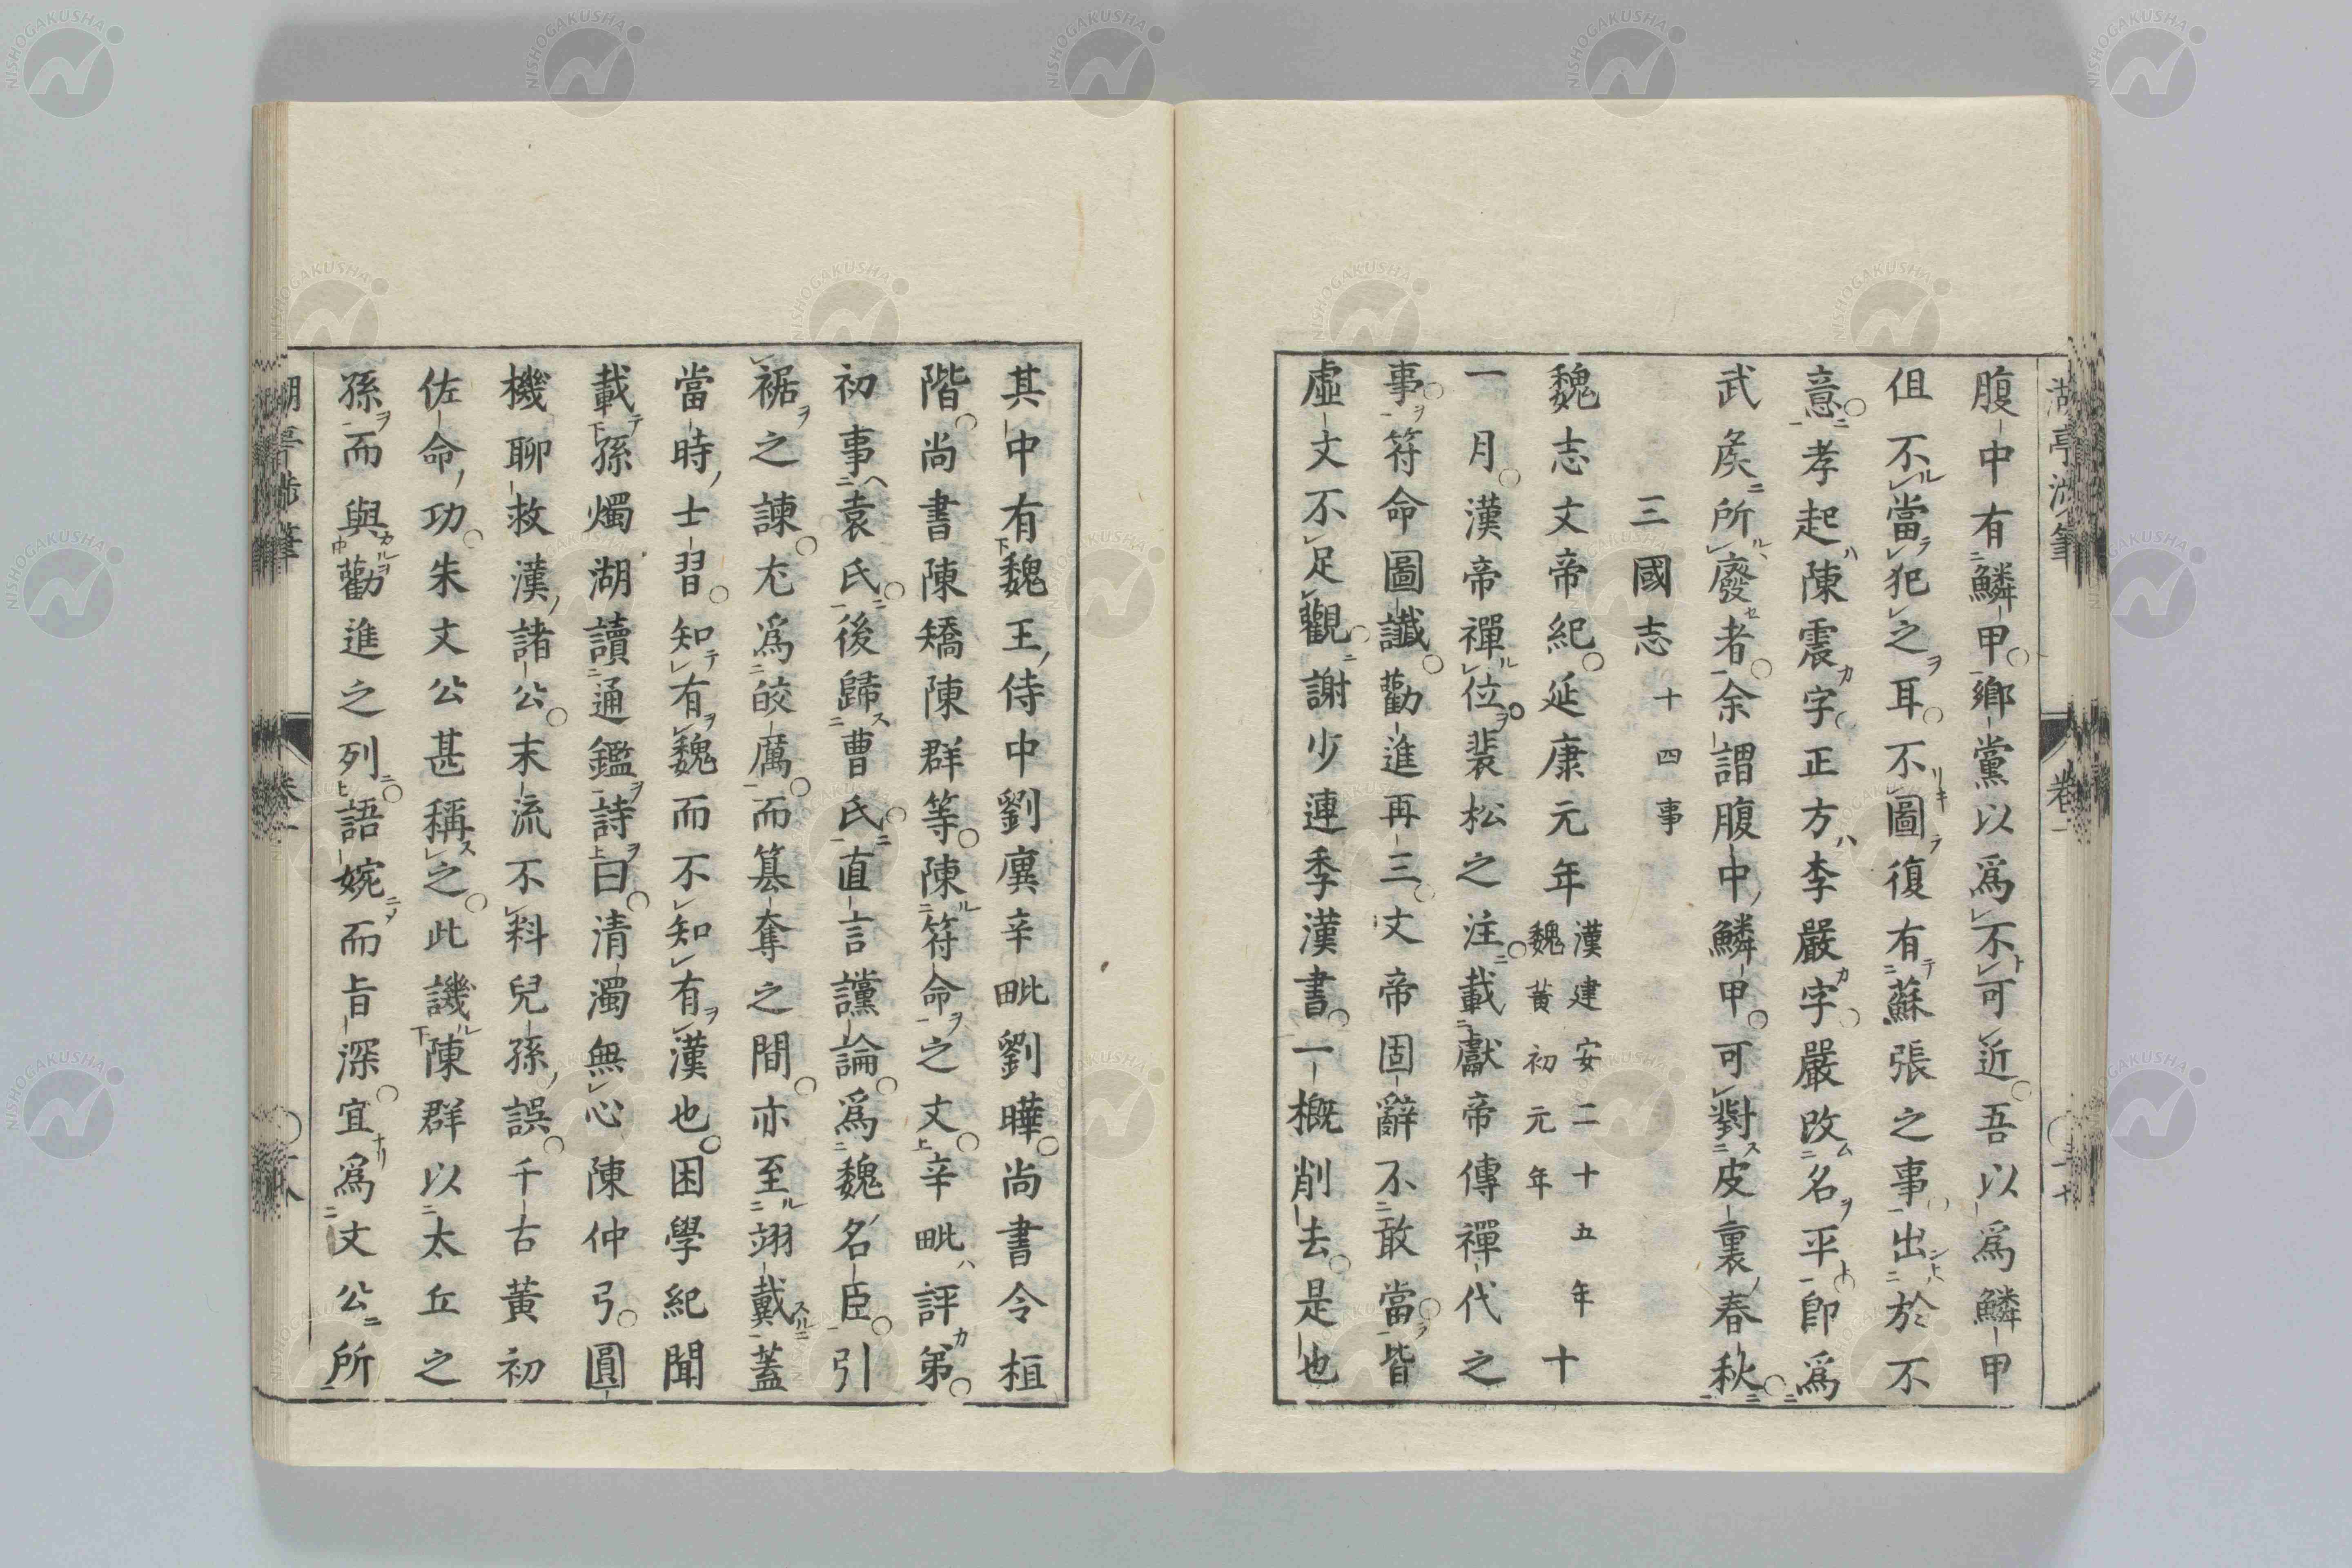 腹中有鱗甲鄉黨以爲不可近吾以爲鱗甲
但不當犯之耳不圖復有蘇張之事出於不
意孝起陳震字正方李嚴字嚴改名平卽爲
武矦所廢者余謂腹中鱗甲可對皮裏春秋
三國志十四事
魏志文帝紀延康元年漢建安二十五年魏黃初元年十
一月漢帝禪位裴松之注載獻帝傳禪代之
事符命圖讖勸進再三文帝固辭不敢當皆
虛文不足觀謝少連季漢書一槪削去是也
其中有魏王侍中劉廙辛毗劉曄尚書令桓
階尚書陳矯陳群等陳符命之文辛毗評第
初事袁氏後歸曹氏直言讜論爲魏名臣引
裾之諫尤爲皎厲而篡奪之間亦至翊戴蓋
當時士習知有魏而不知有漢也困學紀聞
載孫燭湖讀通鑑詩曰清濁無心陳仲弓圓
機聊救漢諸公末流不料兒孫誤千古黃初
佐命功朱文公甚稱之此譏陳群以太丘之
孫而與勸進之列語婉而旨深宜爲文公所
NISHOGAKUSHA